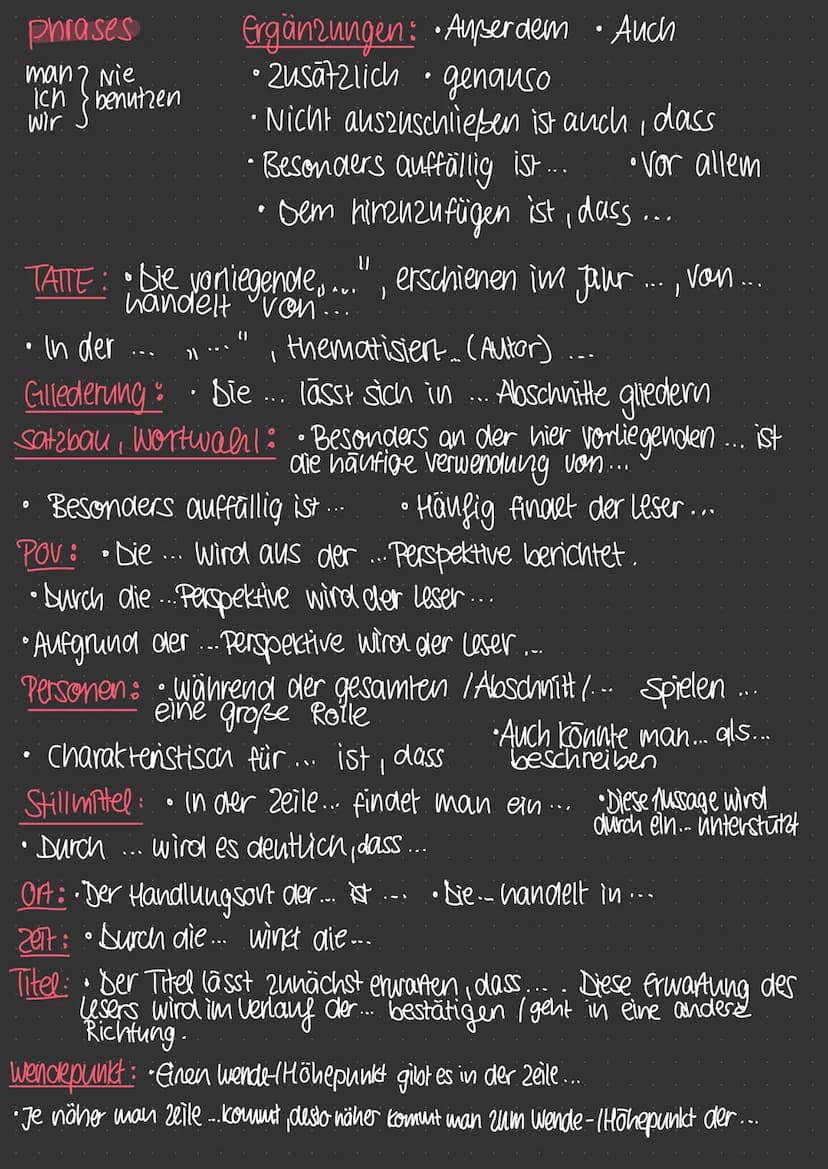 phrases
man
ich
wir
nie
benutzen
Ergänzungen: • Außerdem • Auch
• zusätzlich • genauso
• Nicht auszuschließen ist auch, dass
• Besonders auffällig ist ... • Vor allem
• Dem hinzuzufügen ist, dass ...
TATTE: • Die vorliegende „...", erschienen im Jahr ..., von ...
handelt von ...
• In der ... „...", thematisiert ... (Autor) ...
Gliederung: • Die ... lässt sich in ... Abschnitte gliedern
Satzbau, Wortwahl: • Besonders an der hier vorliegenden ... ist
die häufige Verwendung von ...
• Besonders auffällig ist ... • Häufig findet der Leser ...
POV: • Die ... wird aus der ... Perspektive berichtet.
• Durch die ... Perspektive wird der Leser ...
• Aufgrund der ... Perspektive wird der Leser ...
Personen: • während der gesamten /Abschnitt /... spielen ...
eine große Rolle
• Charakteristisch für ... ist, dass
• Auch könnte man ... als ...
beschreiben
Stillmittel: • In der Zeile ... findet man ein ...
• Diese Aussage wird
durch ein ... unterstützt
• Durch ... wird es deutlich, dass ...
Ort: • Der Handlungsort der ... ist ... • Die ... handelt in ...
Zeit: • Durch die ... wirkt die ...
Titel: • Der Titel lässt zunächst erwarten, dass ... . Diese Erwartung des
Lesers wird im Verlauf der ... bestätigen / geht in eine andere
Richtung.
Wendepunkt: • Einen Wende-/Höhepunkt gibt es in der Zeile ...
• Je näher man Zeile ... kommt, desto näher kommt man zum Wende-/Höhepunkt der ...